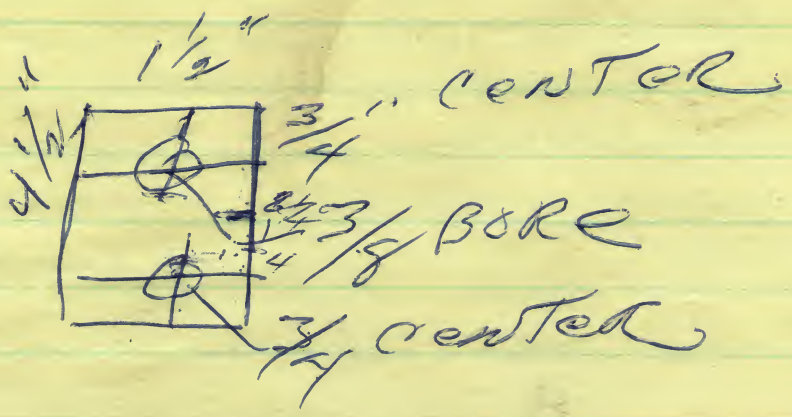 1 1/2"
4 1/2"
3/4" CENTER
3/8 BORE
3/4 CENTER